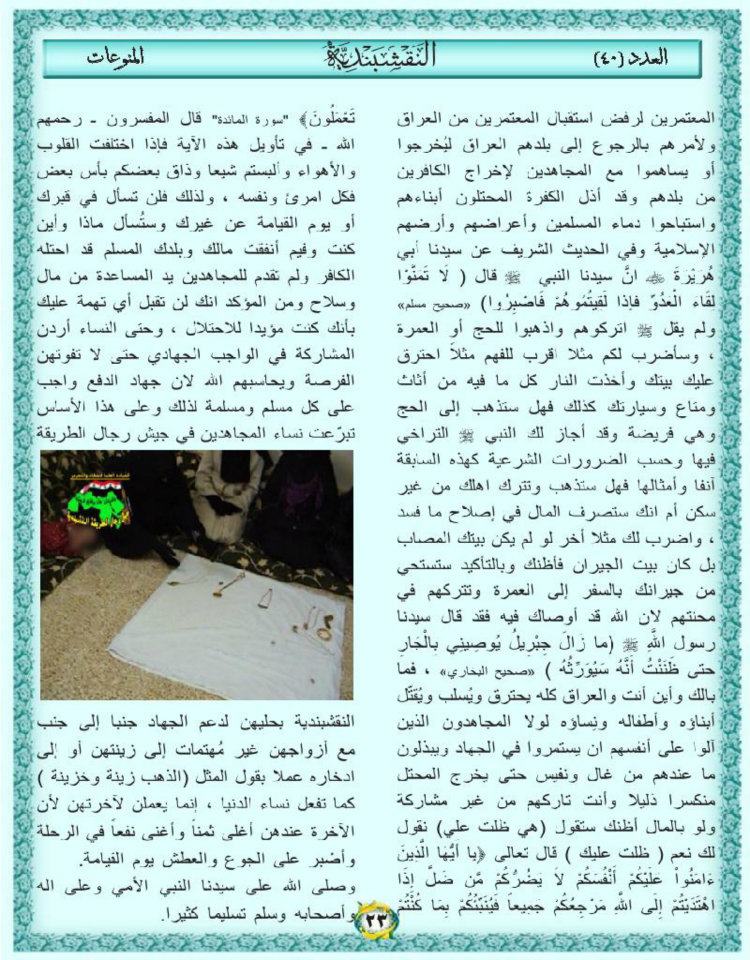 العدد (٤٠)
النقشبندية
المنوعات
المعتمرين لرفض استقبال المعتمرين من العراق
ولأمرهم بالرجوع إلى بلدهم العراق ليُخرجوا
أو يساهموا مع المجاهدين لإخراج الكافرين
من بلدهم وقد أذل الكفرة المحتلون أبناءهم
واستباحوا دماء المسلمين وأعراضهم وأرضهم
الإسلامية وفي الحديث الشريف عن سيدنا أبي
هُرَيْرَةَ انَّ سيدنا النبي ﷺ قال ( لَا تَمَنَّوْا
لِقَاءَ الْعَدُوِّ فإذا لَقِيتُمُوهُمْ فَاصْبِرُوا) «صحيح مسلم»
ولم يقل ﷺ اتركوهم واذهبوا للحج أو العمرة
، وسأضرب لكم مثلا اقرب للفهم مثلاً احترق
عليك بيتك وأخذت النار كل ما فيه من أثاث
ومتاع وسيارتك كذلك فهل ستذهب إلى الحج
وهي فريضة وقد أجاز لك النبي ﷺ التراخي
فيها وحسب الضرورات الشرعية كهذه السابقة
آنفا وأمثالها فهل ستذهب وتترك اهلك من غير
سكن أم انك ستصرف المال في إصلاح ما فسد
، واضرب لك مثلا أخر لو لم يكن بيتك المصاب
بل كان بيت الجيران فأظنك وبالتأكيد ستستحي
من جيرانك بالسفر إلى العمرة وتتركهم في
محنتهم لان الله قد أوصاك فيه فقد قال سيدنا
رسول اللَّهِ ﷺ (ما زَالَ جِبْرِيلُ يُوصِينِي بِالْجَارِ
حتى ظَنَنْتُ أَنَّهُ سَيُوَرِّثُهُ ) «صحيح البخاري» ، فما
بالك وأين أنت والعراق كله يحترق ويُسلب ويُقتَّل
أبناؤه وأطفاله ونِساؤه لولا المجاهدون الذين
آلوا على أنفسهم ان يستمروا في الجهاد ويبذلون
ما عندهم من غال ونفيس حتى يخرج المحتل
منكسرا ذليلا وأنت تاركهم من غير مشاركة
ولو بالمال أظنك ستقول (هي ظلت علي) نقول
لك نعم ( ظلت عليك ) قال تعالى ﴿يا أَيُّهَا الَّذِينَ
ءَامَنُواْ عَلَيْكُمْ أَنْفُسَكُمْ لاَ يَضُرُّكُمْ مَّن ضَلَّ إِذَا
اهْتَدَيْتُمْ إِلَى اللَّهِ مَرْجِعُكُمْ جَمِيعاً فَيُنَبِّئُكُمْ بِمَا كُنْتُمْ
تَعْمَلُونَ﴾ "سورة المائدة" قال المفسرون ـ رحمهم
الله ـ في تأويل هذه الآية فإذا اختلفت القلوب
والأهواء وألبستم شيعا وذاق بعضكم بأس بعض
فكل امرئ ونفسه ، ولذلك فلن تسأل في قبرك
أو يوم القيامة عن غيرك وستُسأل ماذا وأين
كنت وفيم أنفقت مالك وبلدك المسلم قد احتله
الكافر ولم تقدم للمجاهدين يد المساعدة من مال
وسلاح ومن المؤكد انك لن تقبل أي تهمة عليك
بأنك كنت مؤيدا للاحتلال ، وحتى النساء أردن
المشاركة في الواجب الجهادي حتى لا تفوتهن
الفرصة ويحاسبهم الله لان جهاد الدفع واجب
على كل مسلم ومسلمة لذلك وعلى هذا الأساس
تبرّعت نساء المجاهدين في جيش رجال الطريقة
القيادة العليا للجهاد والتحرير
النقشبندية بحليهن لدعم الجهاد جنبا إلى جنب
مع أزواجهن غير مُهتمات إلى زينتهن أو إلى
ادخاره عملا بقول المثل (الذهب زينة وخزينة )
كما تفعل نساء الدنيا ، إنما يعملن لآخرتهن لأن
الآخرة عندهن أغلى ثمناً وأغنى نفعاً في الرحلة
وأصْبر على الجوع والعطش يوم القيامة.
وصلى الله على سيدنا النبي الأمي وعلى اله
وأصحابه وسلم تسليما كثيرا.
٢٣